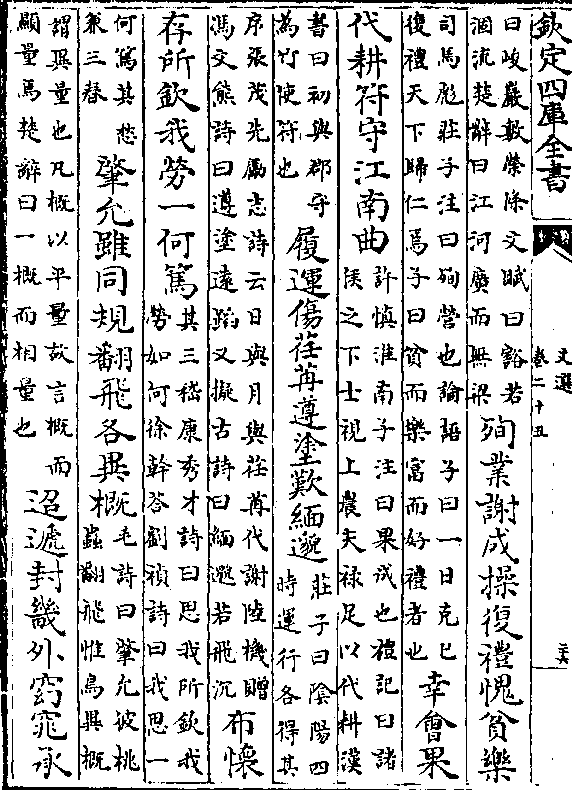 欽定四庫全書
文選
卷二十五
二十六
曰峻巖敷榮除文賦曰豁若
涸流楚辭曰江河廣而無梁
殉業謝成操復禮愧貧樂
司馬彪莊子注曰殉營也論語子曰一日克己
復禮天下歸仁焉子曰貧而樂富而好禮者也
幸會果
代耕符守江南曲
許慎淮南子注曰果成也禮記曰諸
侯之下士視上農夫祿足以代耕漢
書曰初與郡守
為竹使符也
履運傷荏苒遵塗歎緬邈
莊子曰陰陽四
時運行各得其
序張茂先勵志詩云日與月與荏苒代謝陸機贈
馮文熊詩曰遵塗遠蹈又擬古詩曰緬邈若飛沉
布懷
存所欽我勞一何篤
其三嵇康秀才詩曰思我所欽我
勞如何徐幹答劉禎詩曰我思一
何篤其愁
兼三春
肇允雖同規翻飛各異概
毛詩曰肇允彼桃
蟲翻飛惟鳥異概
謂異量也凡概以平量故言概而
顯量焉楚辭曰一概而相量也
迢遞封畿外窈窕承